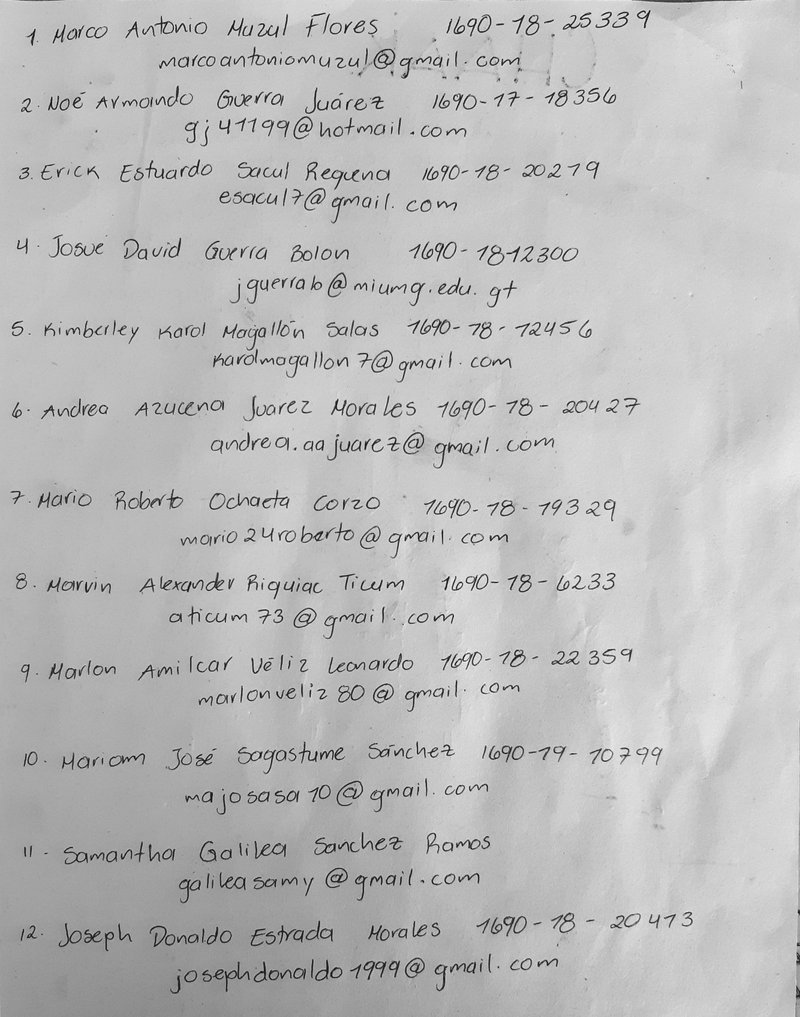 1. Marco Antonio Muzul Flores 1690-18-25339
marcoantoniomuzul@gmail.com
2. Noé Armando Guerra Juárez 1690-17-18356
gj41199@hotmail.com
3. Erick Estuardo Sacul Requena 1690-18-20219
esacul7@gmail.com
4. Josué David Guerra Bolon 1690-1812300
jguerrab@miumg.edu.gt
5. Kimberley Karol Magallón Salas 1690-18-12456
karolmagallon7@gmail.com
6. Andrea Azucena Juarez Morales 1690-18-20427
andrea.aajuarez@gmail.com
7. Mario Roberto Ochaeta Corzo 1690-18-19329
mario24roberto@gmail.com
8. Marvin Alexander Riquiac Ticum 1690-18-6233
aticum73@gmail.com
9. Marlon Amilcar Véliz Leonardo 1690-18-22359
marlonveliz80@gmail.com
10. Mariam José Sagastume Sánchez 1690-19-10799
majosasa10@gmail.com
11- Samantha Galilea Sanchez Ramos
galileasamy@gmail.com
12. Joseph Donaldo Estrada Morales 1690-18-20413
josephdonaldo1999@gmail.com